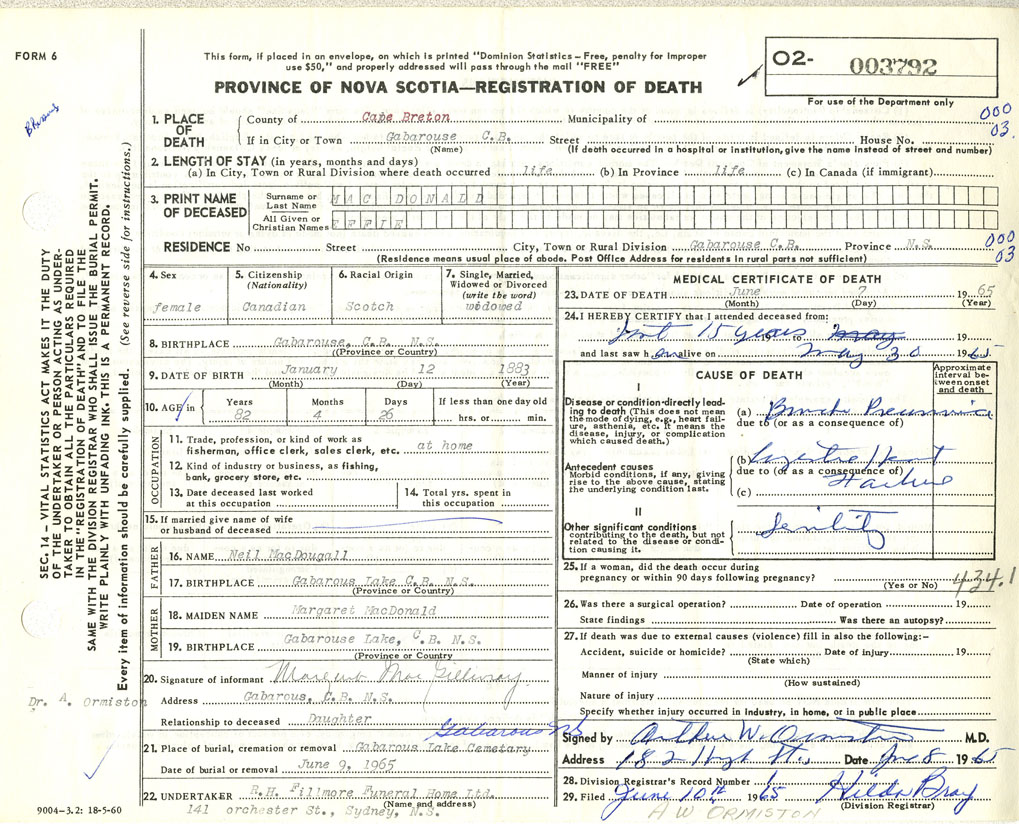 FORM 6
This form, if placed in an envelope, on which is printed "Dominion Statistics – Free, penalty for improper
use $50," and properly addressed will pass through the mail "FREE"
PROVINCE OF NOVA SCOTIA—REGISTRATION OF DEATH
O2- 003792
For use of the Department only
SEC. 14 – VITAL STATISTICS ACT MAKES IT THE DUTY
OF THE UNDERTAKER OR PERSON ACTING AS UNDER-
TAKER TO OBTAIN ALL THE PARTICULARS REQUIRED
IN THE "REGISTRATION OF DEATH" AND TO FILE THE
SAME WITH THE DIVISION REGISTRAR WHO SHALL ISSUE THE BURIAL PERMIT.
WRITE PLAINLY WITH UNFADING INK. THIS IS A PERMANENT RECORD.
Every item of information should be carefully supplied. (See reverse side for instructions.)
Dr. A. Ormiston
9004-3.2: 18-5-60
1. PLACE OF DEATH
County of Cape Breton Municipality of 000
03.
If in City or Town Gabarouse C.B. Street House No.
(Name) (If death occurred in a hospital or institution, give the name instead of street and number)
2. LENGTH OF STAY (in years, months and days)
(a) In City, Town or Rural Division where death occurred life (b) In Province life (c) In Canada (if immigrant)
3. PRINT NAME OF DECEASED
Surname or Last Name MAC DONALD
All Given or Christian Names EFFIE
RESIDENCE No Street City, Town or Rural Division Gabarouse C.B. Province N.S. 000
03
(Residence means usual place of abode. Post Office Address for residents in rural parts not sufficient)
4. Sex
female
5. Citizenship (Nationality)
Canadian
6. Racial Origin
Scotch
7. Single, Married, Widowed or Divorced (write the word)
widowed
8. BIRTHPLACE Gabarouse, C.B. N.S.
(Province or Country)
9. DATE OF BIRTH January 12 1883
(Month) (Day) (Year)
10. AGE in Years Months Days If less than one day old
82 4 26 hrs. or min.
OCCUPATION
11. Trade, profession, or kind of work as
fisherman, office clerk, sales clerk, etc. at home
12. Kind of industry or business, as fishing,
bank, grocery store, etc.
13. Date deceased last worked
at this occupation
14. Total yrs. spent in
this occupation
15. If married give name of wife
or husband of deceased
FATHER
16. NAME Neil MacDougall
17. BIRTHPLACE Gabarous Lake C.B. N.S.
(Province or Country)
MOTHER
18. MAIDEN NAME Margaret MacDonald
19. BIRTHPLACE Gabarouse Lake, C.B. N.S.
(Province or Country
20. Signature of informant Mac Gillivray
Address Gabarous, C.B. N.S.
Relationship to deceased Daughter
Gabarous NS
21. Place of burial, cremation or removal Gabarous Lake Cemetary
Date of burial or removal June 9, 1965
22. UNDERTAKER R.H. Fillmore Funeral Home Ltd.
(Name and address)
141 orchester St., Sydney, N.S.
MEDICAL CERTIFICATE OF DEATH
23. DATE OF DEATH June 7 19 65
(Month) (Day)
24. I HEREBY CERTIFY that I attended deceased from:
15 years 19 to may 19
and last saw h er alive on May 30 19 65
CAUSE OF DEATH
Approximate interval between onset and death
I
Disease or condition-directly leading to death (This does not mean the mode of dying, e.g., heart failure, asthenia, etc. It means the disease, injury, or complication which caused death.)
(a) Bronch Pneumonia
due to (or as a consequence of)
Antecedent causes
Morbid conditions, if any, giving rise to the above cause, stating the underlying condition last.
(b) Congestive Heart
due to (or as a consequence of)
Failure
(c)
II
Other significant conditions
contributing to the death, but not related to the disease or condition causing it.
Senility
25. If a woman, did the death occur during
pregnancy or within 90 days following pregnancy?
(Yes or No) 434.1
26. Was there a surgical operation? Date of operation 19
State findings Was there an autopsy?
27. If death was due to external causes (violence) fill in also the following:–
Accident, suicide or homicide? Date of injury 19
(State which)
Manner of injury
(How sustained)
Nature of injury
Specify whether injury occurred in industry, in home, or in public place
Signed by Arthur W. Ormiston M.D.
Address 182 High St. Date June 8 19 65
28. Division Registrar's Record Number 1
29. Filed June 10th 1965 Hilda Bray
(Division Registrar)
A W ORMISTON